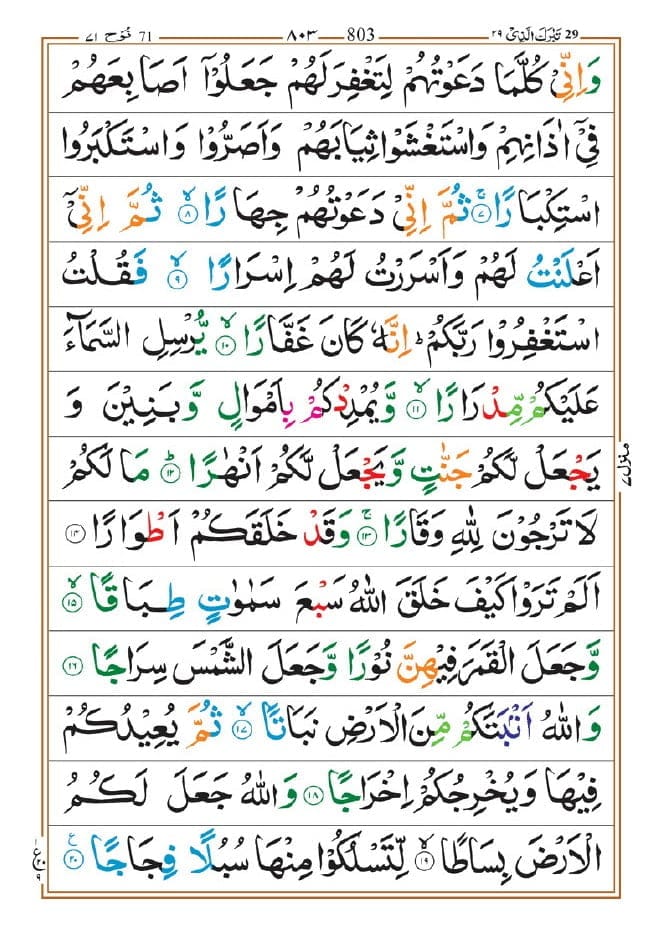 29 تَبٰرَكَ الَّذِیْ ٢٩ 803 ٨٠٣ 71 نُوْح ٧١
وَاِنِّیْ كُلَّمَا دَعَوْتُهُمْ لِتَغْفِرَ لَهُمْ جَعَلُوْۤا اَصَابِعَهُمْ
فِیْۤ اٰذَانِهِمْ وَاسْتَغْشَوْا ثِیَابَهُمْ وَاَصَرُّوْا وَاسْتَكْبَرُوا
اسْتِكْبَارًا ۚ‏﴿٧﴾ ثُمَّ اِنِّیْ دَعَوْتُهُمْ جِهَارًا ۙ‏﴿٨﴾ ثُمَّ اِنِّیْۤ
اَعْلَنْتُ لَهُمْ وَاَسْرَرْتُ لَهُمْ اِسْرَارًا ۙ‏﴿٩﴾ فَقُلْتُ
اسْتَغْفِرُوْا رَبَّكُمْ ؕ اِنَّهٗ كَانَ غَفَّارًا ۙ‏﴿١٠﴾ یُّرْسِلِ السَّمَآءَ
عَلَیْكُمْ مِّدْرَارًا ۙ‏﴿١١﴾ وَّیُمْدِدْكُمْ بِاَمْوَالٍ وَّبَنِیْنَ وَ
یَجْعَلْ لَّكُمْ جَنّٰتٍ وَّیَجْعَلْ لَّكُمْ اَنْهٰرًا ؕ‏﴿١٢﴾ مَا لَكُمْ
لَا تَرْجُوْنَ لِلّٰهِ وَقَارًا ۚ‏﴿١٣﴾ وَقَدْ خَلَقَكُمْ اَطْوَارًا ﴿١٤﴾
اَلَمْ تَرَوْا كَیْفَ خَلَقَ اللّٰهُ سَبْعَ سَمٰوٰتٍ طِبَاقًا ۙ‏﴿١٥﴾
وَّجَعَلَ الْقَمَرَ فِیْهِنَّ نُوْرًا وَّجَعَلَ الشَّمْسَ سِرَاجًا ﴿١٦﴾
وَاللّٰهُ اَنْۢبَتَكُمْ مِّنَ الْاَرْضِ نَبَاتًا ۙ‏﴿١٧﴾ ثُمَّ یُعِیْدُكُمْ
فِیْهَا وَیُخْرِجُكُمْ اِخْرَاجًا ﴿١٨﴾ وَاللّٰهُ جَعَلَ لَكُمُ
الْاَرْضَ بِسَاطًا ۙ‏﴿١٩﴾ لِّتَسْلُكُوْا مِنْهَا سُبُلًا فِجَاجًا ﴿٢٠﴾ ع
منزل ٧
ع
٢٠
٩